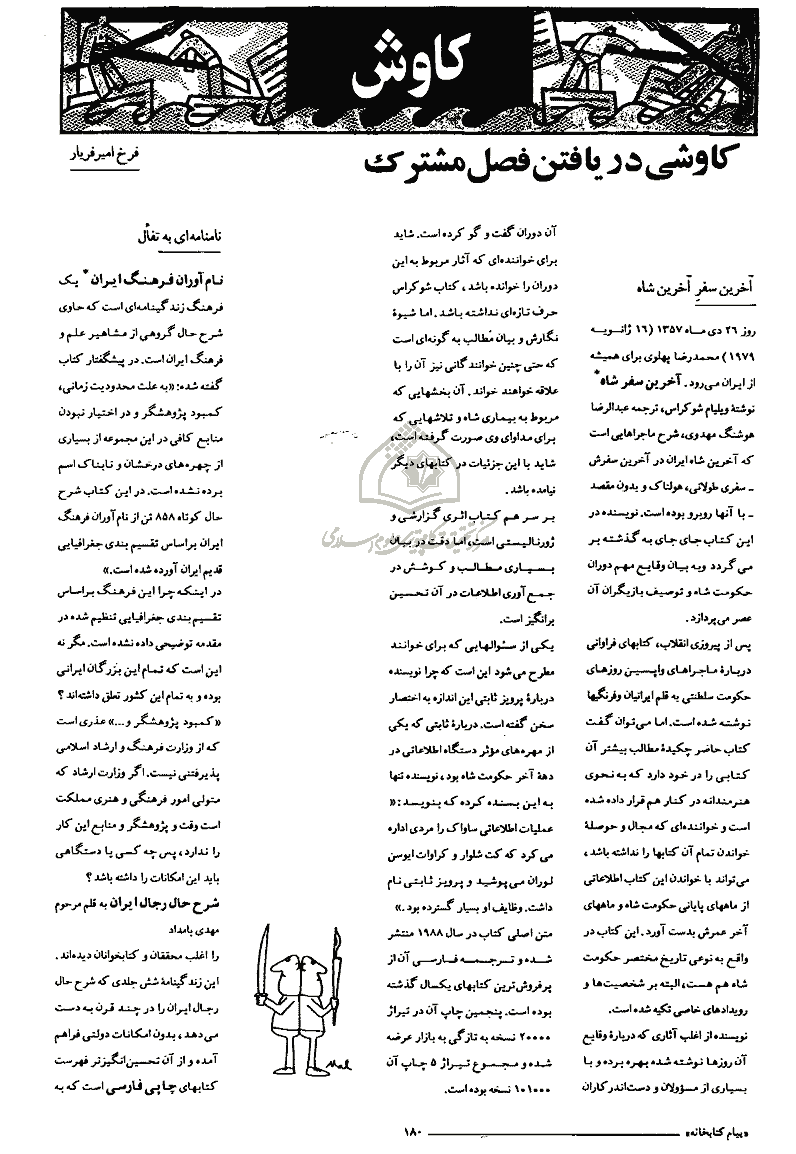 کاوش
کاوشی در یافتن فصل مشترک
فرخ امیرفریار
آخرین سفر آخرین شاه
روز ۲۶ دی ماه ۱۳۵۷ (۱۶ ژانویه
۱۹۷۹) محمدرضا پهلوی برای همیشه
از ایران می‌رود. آخرین سفر شاه*
نوشتهٔ ویلیام شوکراس، ترجمه عبدالرضا
هوشنگ مهدوی، شرح ماجراهایی است
که آخرین شاه ایران در آخرین سفرش
ـ سفری طولانی، هولناک و بدون مقصد
ـ با آنها روبرو بوده است. نویسنده در
این کتاب جای جای به گذشته بر
می گردد و به بیان وقایع مهم دوران
حکومت شاه و توصیف بازیگران آن
عصر می‌پردازد.
پس از پیروزی انقلاب، کتابهای فراوانی
دربارهٔ ماجراهای واپسین روزهای
حکومت سلطنتی به قلم ایرانیان و فرنگیها
نوشته شده است. اما می‌توان گفت
کتاب حاضر چکیدهٔ مطالب بیشتر آن
کتابی را در خود دارد که به نحوی
هنرمندانه در کنار هم قرار داده شده
است و خواننده‌ای که مجال و حوصلهٔ
خواندن تمام آن کتابها را نداشته باشد،
می‌تواند با خواندن این کتاب اطلاعاتی
از ماههای پایانی حکومت شاه و ماههای
آخر عمرش بدست آورد. این کتاب در
واقع به نوعی تاریخ مختصر حکومت
شاه هم هست، البته بر شخصیت‌ها و
رویدادهای خاصی تکیه شده است.
نویسنده از اغلب آثاری که دربارهٔ وقایع
آن روزها نوشته شده بهره برده و با
بسیاری از مسؤولان و دست‌اندرکاران
آن دوران گفت و گو کرده است. شاید
برای خواننده‌ای که آثار مربوط به این
دوران را خوانده باشد، کتاب شوکراس
حرف تازه‌ای نداشته باشد. اما شیوهٔ
نگارش و بیان مطالب به گونه‌ای است
که حتی چنین خوانندگانی نیز آن را با
علاقه خواهند خواند. آن بخشهایی که
مربوط به بیماری شاه و تلاشهایی که
برای مداوای وی صورت گرفته است،
شاید با این جزئیات در کتابهای دیگر
نیامده باشد.
بر سر هم کتاب اثری گزارشی و
ژورنالیستی است، اما دقت در بیان
بسیاری مطالب و کوشش در
جمع آوری اطلاعات در آن تحسین
برانگیز است.
یکی از سئوالهایی که برای خوانند
مطرح می‌شود این است که چرا نویسنده
دربارهٔ پرویز ثابتی این اندازه به اختصار
سخن گفته است. دربارهٔ ثابتی که یکی
از مهره‌های مؤثر دستگاه اطلاعاتی در
دههٔ آخر حکومت شاه بود، نویسنده تنها
به این بسنده کرده که بنویسد: «
عملیات اطلاعاتی ساواک را مردی اداره
می کرد که کت شلوار و کراوات ایوسن
لوران می‌پوشید و پرویز ثابتی نام
داشت. وظایف او بسیار گسترده بود.»
متن اصلی کتاب در سال ۱۹۸۸ منتشر
شده و ترجمه فارسی آن از
پرفروش‌ترین کتابهای یکسال گذشته
بوده است. پنجمین چاپ آن در تیراژ
۲۰۰۰۰ نسخه به تازگی به بازار عرضه
شده و مجموع تیراژ ۵ چاپ آن
۱۰۱۰۰۰ نسخه بوده است.
نامنامه‌ای به تفأل
نام‌آوران فرهنگ ایران* یک
فرهنگ زندگینامه‌ای است که حاوی
شرح حال گروهی از مشاهیر علم و
فرهنگ ایران است. در پیشگفتار کتاب
گفته شده: «به علت محدودیت زمانی،
کمبود پژوهشگر و در اختیار نبودن
منابع کافی در این مجموعه از بسیاری
از چهره‌های درخشان و تابناک اسم
برده نشده است. در این کتاب شرح
حال کوتاه ۸۵۸ تن از نام آوران فرهنگ
ایران براساس تقسیم بندی جغرافیایی
قدیم ایران آورده شده است.»
در اینکه چرا این فرهنگ براساس
تقسیم‌بندی جغرافیایی تنظیم شده در
مقدمه توضیحی داده نشده است. مگر نه
این است که تمام این بزرگان ایرانی
بوده و به تمام این کشور تعلق داشته‌اند؟
«کمبود پژوهشگر و...» عذری است
که از وزارت فرهنگ و ارشاد اسلامی
پذیرفتنی نیست. اگر وزارت ارشاد که
متولی امور فرهنگی و هنری مملکت
است وقت و پژوهشگر و منابع این کار
را ندارد، پس چه کسی یا دستگاهی
باید این امکانات را داشته باشد؟
شرح حال رجال ایران به قلم مرحوم
مهدی بامداد
را اغلب محققان و کتابخوانان دیده‌اند.
این زندگینامهٔ شش جلدی که شرح حال
رجال ایران را در چند قرن به دست
می‌دهد، بدون امکانات دولتی فراهم
آمده و از آن تحسین‌انگیزتر فهرست
کتابهای چاپی فارسی است که به
«پیام کتابخانه»
۱۸۰